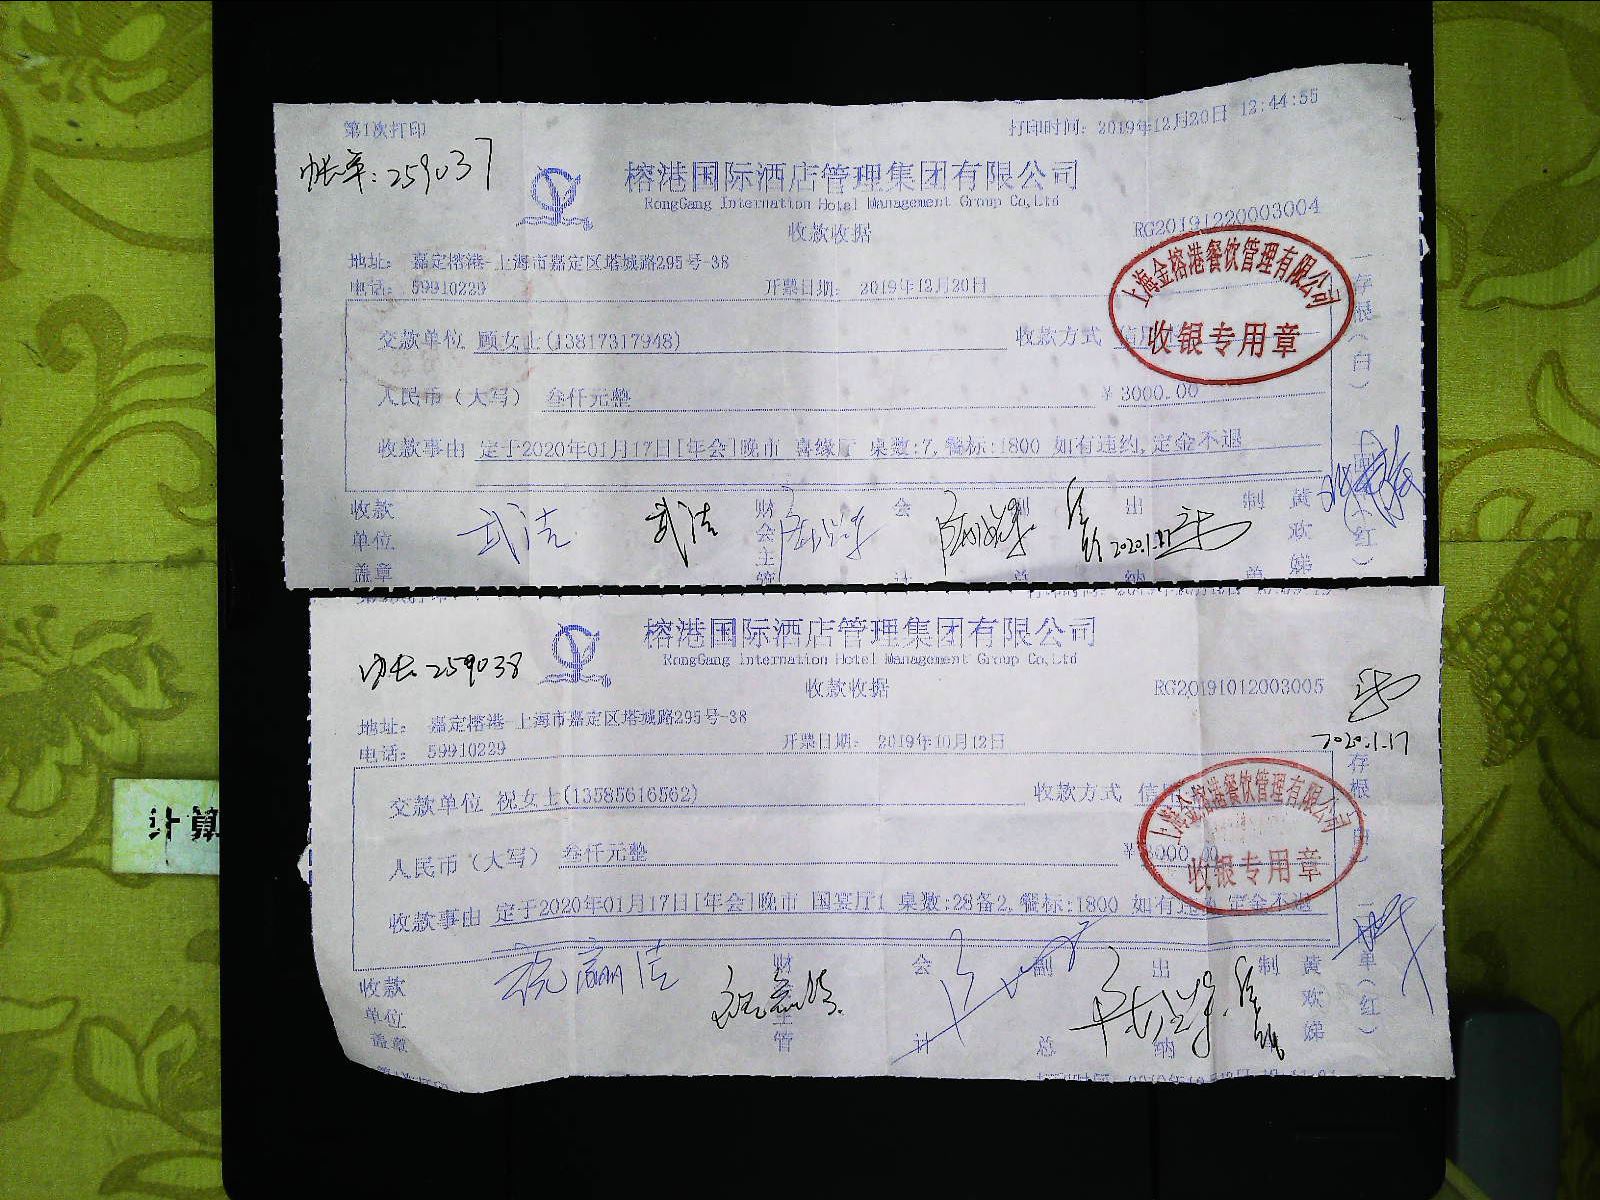 第1次打印
打印时间: 2019年12月20日 12:44:55
帐单: 259037
榕港国际酒店管理集团有限公司
RongGang Internation Hotel Management Group Co,Ltd
收款收据
RG20191220003004
地址: 嘉定榕港-上海市嘉定区塔城路295号-38
电话: 59910229
开票日期: 2019年12月20日
上海金榕港餐饮管理有限公司
收银专用章
交款单位 顾女士(13817317948)
收款方式 信用
人民币(大写) 叁仟元整
¥ 3000.00
收款事由 定于2020年01月17日[年会]晚市 喜缘厅 桌数:7,餐标:1800 如有违约,定金不退
一存根(白)
(红)
收款单位盖章
武洁
武洁
财会主管
会计
副总
出纳
制单
黄欢娣
2020.1.17
榕港国际酒店管理集团有限公司
RongGang Internation Hotel Management Group Co,Ltd
帐 259038
收款收据
RG20191012003005
地址: 嘉定榕港-上海市嘉定区塔城路295号-38
电话: 59910229
开票日期: 2019年10月12日
2020.1.17
上海金榕港餐饮管理有限公司
收银专用章
交款单位 祝女士(13585616562)
收款方式 信
人民币(大写) 叁仟元整
¥ 3000.00
收款事由 定于2020年01月17日[年会]晚市 国宴厅1 桌数:28备2,餐标:1800 如有违 定金不退
存根
单(红)
收款单位盖章
财 主管
会计
副总
出纳
制
黄欢娣
计算